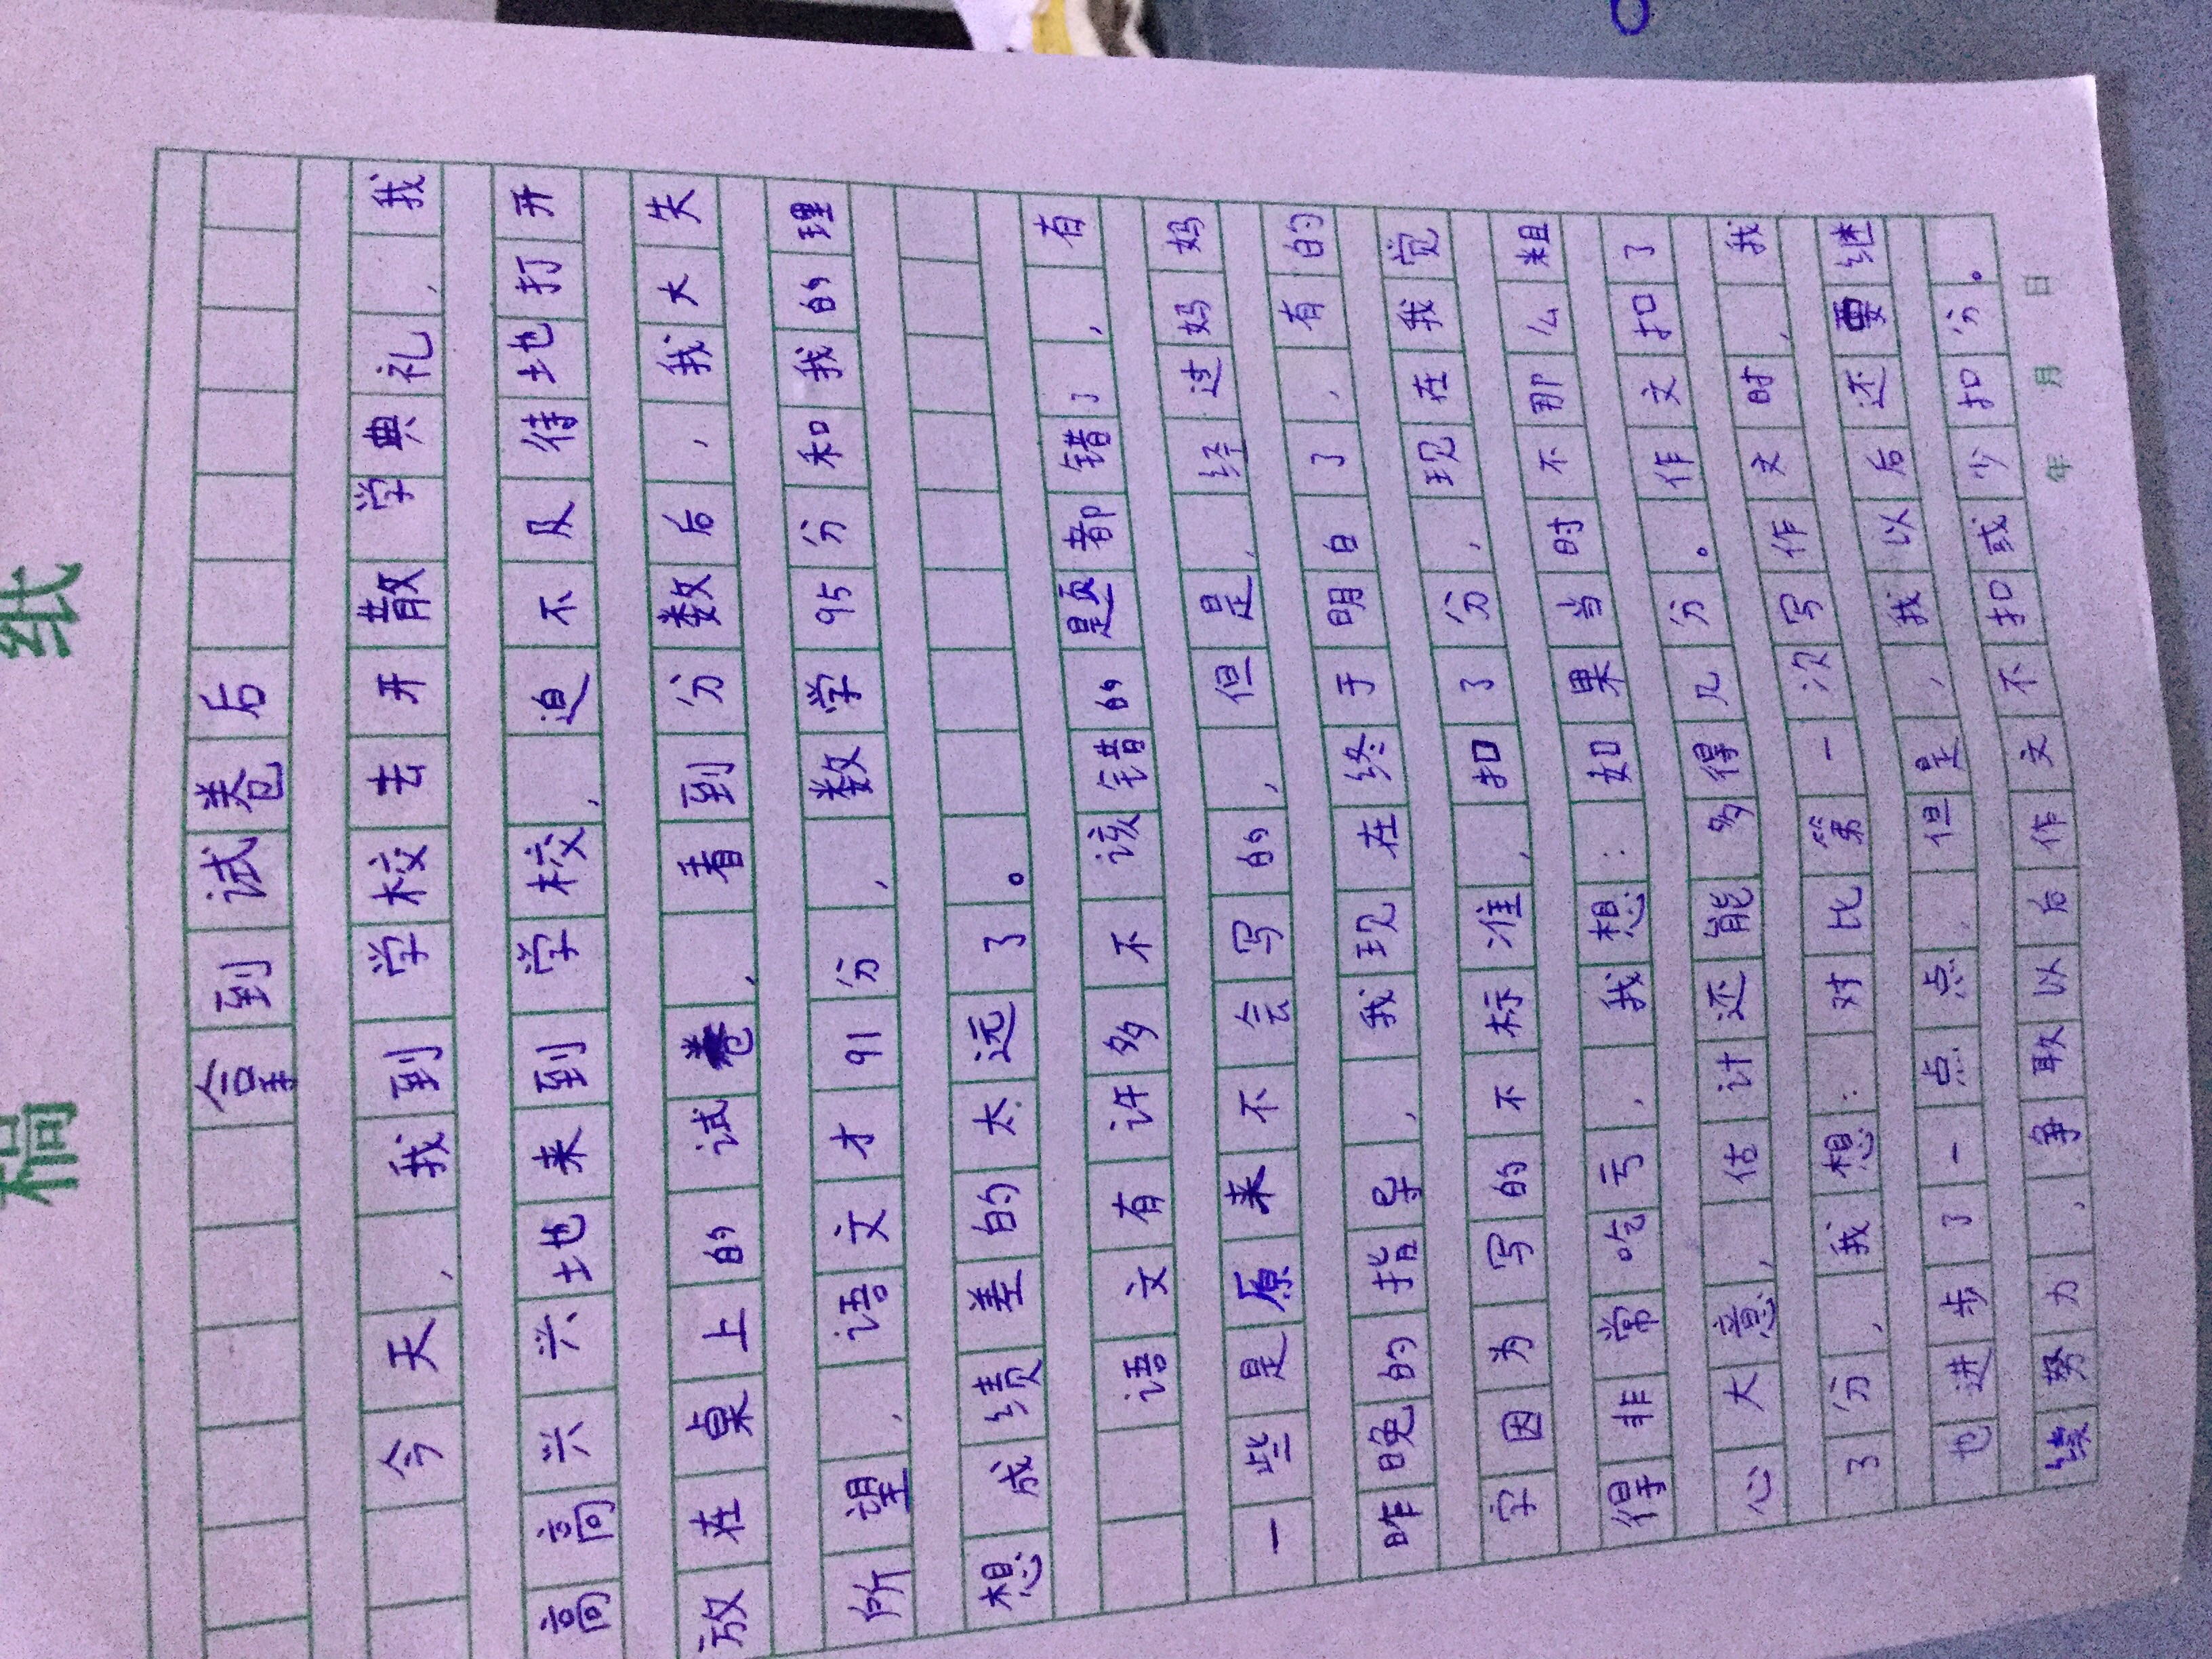 稿 纸
拿到试卷后
今天,我到学校去开散学典礼,我
高高兴兴地来到学校,迫不及待地打开
放在桌上的试卷,看到分数后,我大失
所望,语文才91分,数学95分和我的理
想成绩差的太远了。
语文有许多不该错的题都错了,有
一些是原来不会写的,但是,经过妈妈
昨晚的指导,我现在终于明白了,有的
字因为写的不标准,扣了分,现在我觉
得非常吃亏,我想:如果当时不那么粗
心大意,估计还能多得几分。作文扣了
了分,我想:对比第一次写作文时,我
也进步了一点点,但是,我以后还要继
续努力,争取以后作文不扣或少扣分。
年 月 日